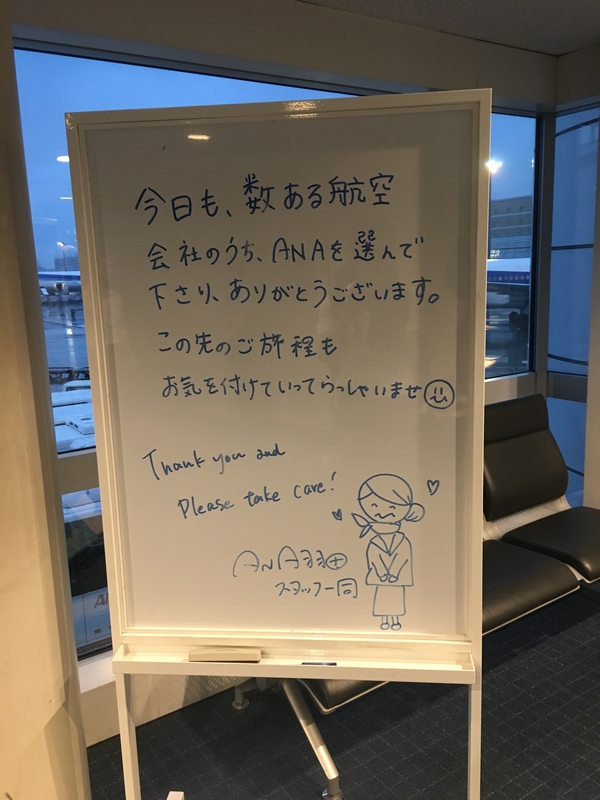 今日も、数ある航空
会社のうち、ANAを選んで
下さり、ありがとうございます。
この先のご旅程も
お気を付けていってらっしゃいませ
Thank you and
Please take care!
ANA羽田
スタッフ一同